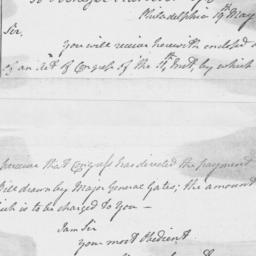 Philadelphia 19th May
Sir,
you will receive herewith enclosed a
of an Act of Congress of the 14th Inst, by which
perceive that Congress has directed the payment
Bill drawn by Major General Gates; the amount
which is to be charged to You —
I am Sir
your most Obedient